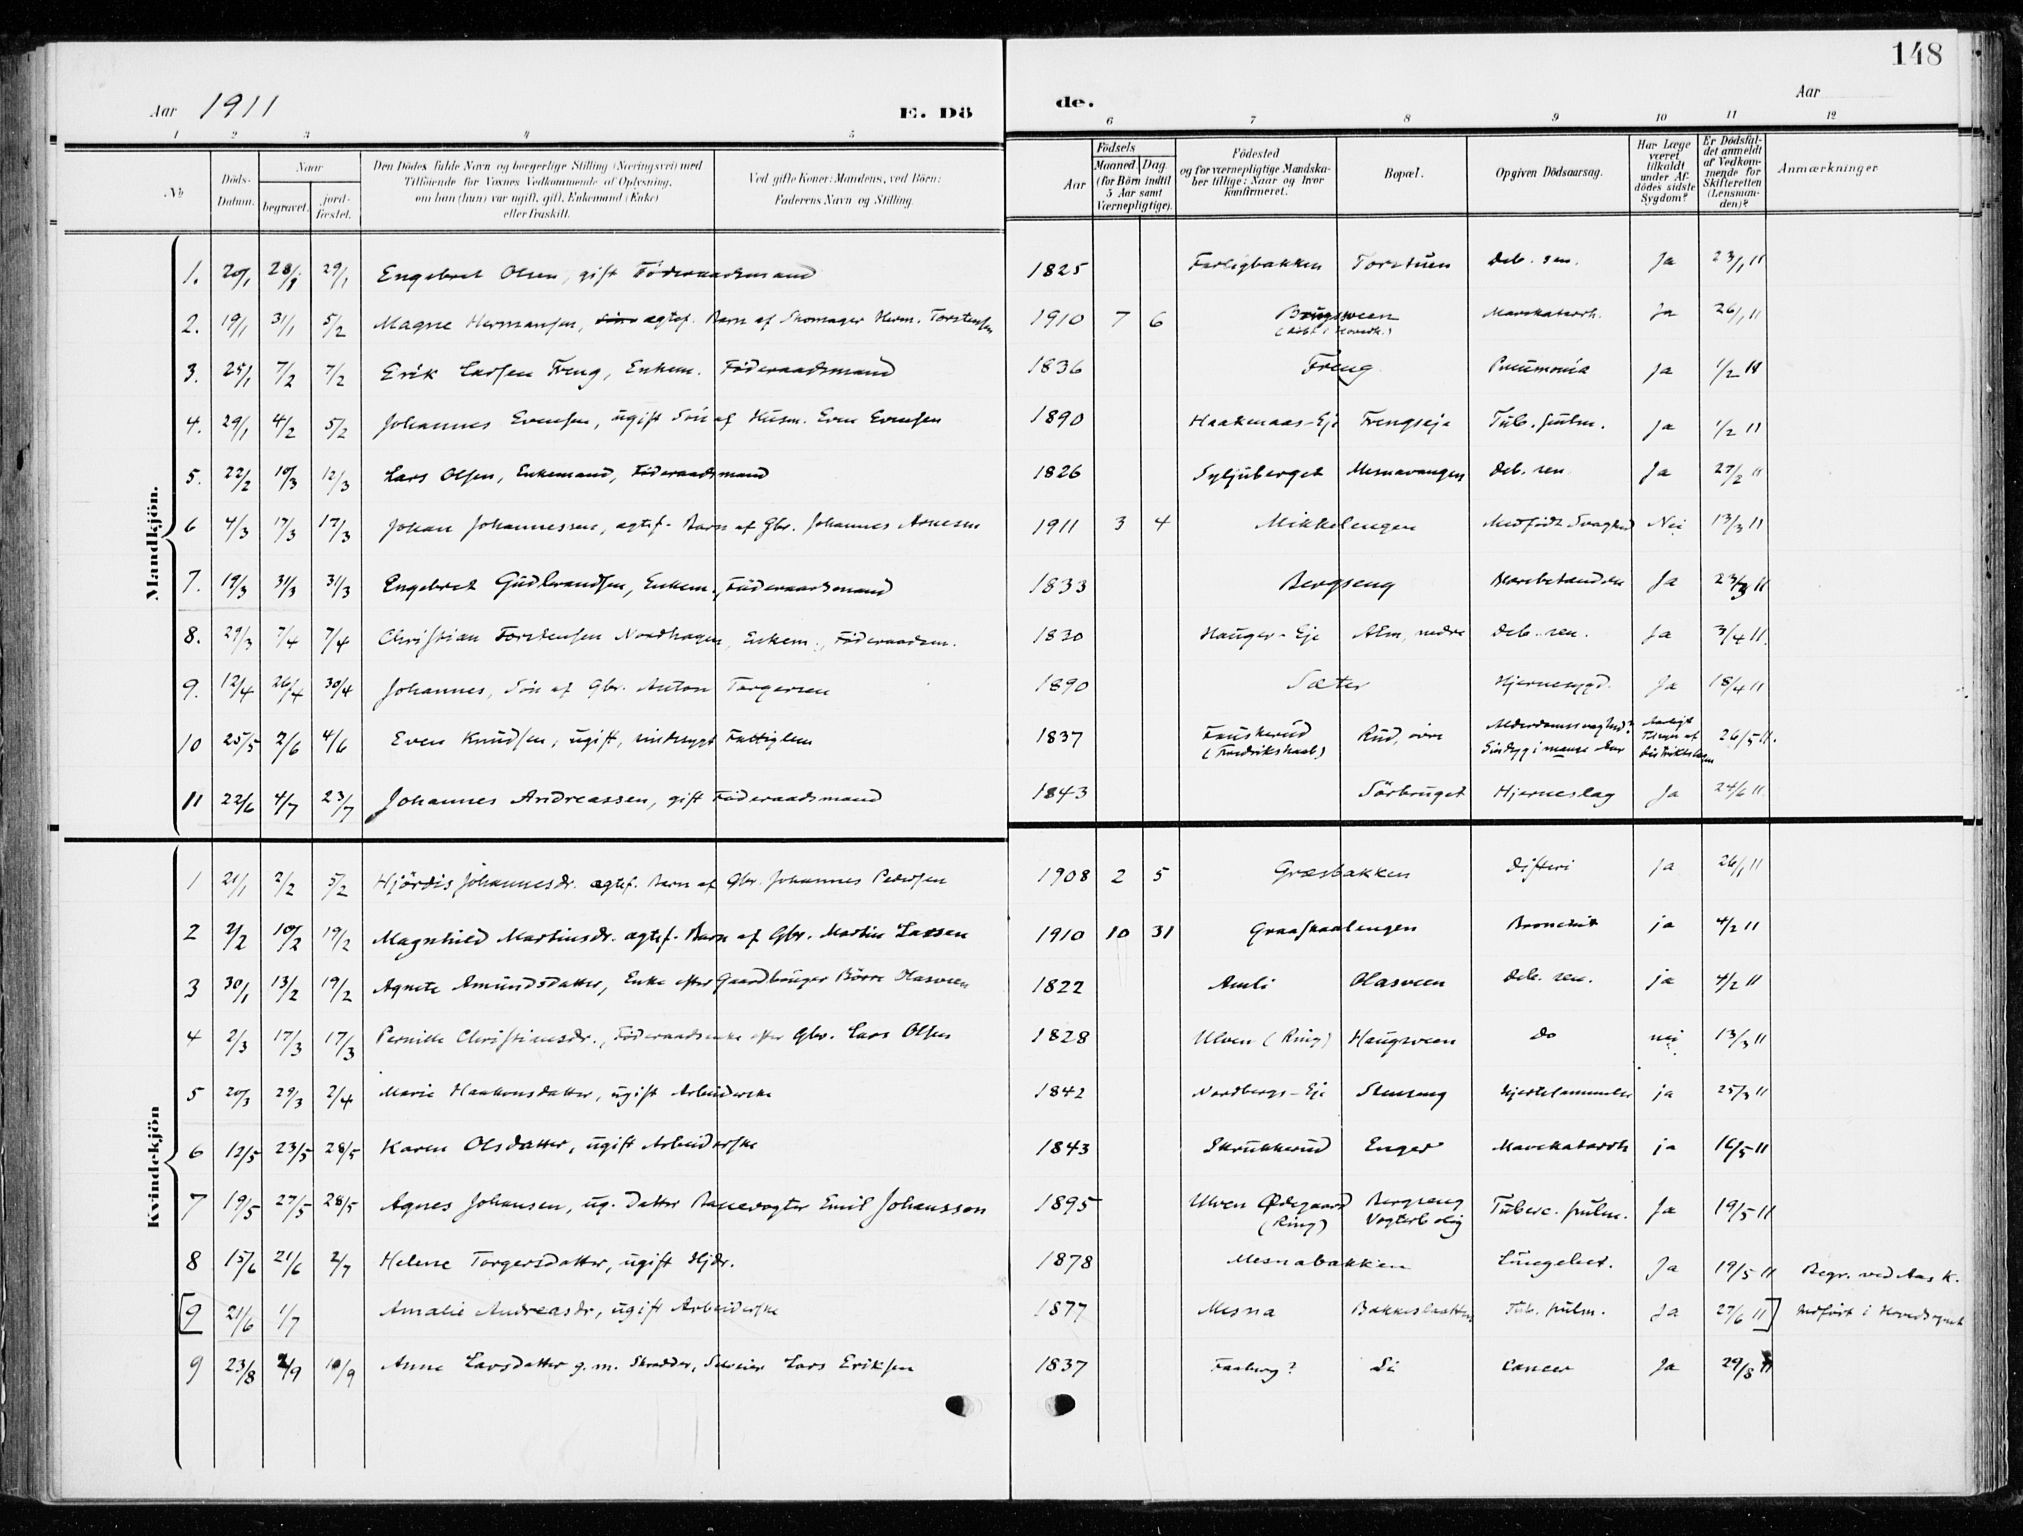 148
Aar 1911 E. Dö de. Aar
1 2 3 4 5 6 7 8 9 10 11 12
No
Döds-Datum.
Naar
begravet.
jord-fæstet.
Den Dödes fulde Navn og borgerlige Stilling (Næringsvei) med
Tilföiende for Voxnes Vedkommende af Oplysning,
om han (hun) var ugift, gift, Enkemand (Enke)
eller fraskilt.
Ved gifte Koner: Mandens, ved Börn:
Faderens Navn og Stilling.
Födsels
Aar
Maaned Dag
(for Börn indtil
5 Aar samt
Værnepligtige).
Födested
og for værnepligtige Mandska-
ber tillige: Naar og hvor
konfirmeret.
Bopæl.
Opgiven Dödsaarsag.
Har Læge
været
tilkaldt
under Af-
dödes sidste
Sygdom?
Er Dödsfal-
det anmeldt
af Vedkom-
mende for
Skifteretten
(Lensman-
den)?
Anmærkninger
Mandkjön.
1. 20/1 28/1 29/1 Engebret Olsen, gift Föderaadsmand 1825 Torstuen Deb. sen. Ja 23/1 11
2. 19/1 31/1 5/2 Magne Hermansen, ægtef. Barn af Skomager Herm. Torstensen 1910 7 6 Brugsveen Mavekatarrh. Ja 26/1 11
3. 25/1 7/2 7/2 Erik Larsen Freng, Enkem. Föderaadsmand 1836 Freng Pneumonia Ja 1/2 11
4. 29/1 4/2 5/2 Johannes Evensen, ugift Sön af Husm. Even Evensen 1890 Haakenaas-Eje Frengseje Tub. pulm. Ja 1/2 11
5. 22/2 10/3 12/3 Lars Olsen, Enkemand, Föderaadsmand 1826 Syljuberget Mesnavangen Deb. sen. Ja 27/2 11
6 4/3 17/3 17/3 Johan Johannessen, ægtef. Barn af Gbr. Johannes Arnesen 1911 3 4 Mikkelengen Medfödt Svaghed Nei 13/3 11
7. 19/3 31/3 31/3 Engebret Gudbrandsen, Enkem., Föderaadsmand 1833 Bergseng Ja 23/3 11
8. 29/3 7/4 7/4 Christian Torstensen Nordhagen, Enkem., Föderaadsm. 1830 Hauger-Eje Alm, nedre Deb. sen. Ja 3/4 11.
9. 12/4 26/4 30/4 Johannes, Sön af Gbr. Anton Torgersen 1890 Sæter Hjernesygd. Ja 18/4 11
10 25/5 2/6 4/6 Even Knudsen, ugift, sindssygt Fattiglem 1837 (Fredrikshald) Rud, övre Alderdomssvaghed? Sindssyg i mange Aar 26/5 11.
11 22/6 4/7 23/7 Johannes Andreassen, gift Föderaadsmand 1843 Sörbruget Hjerneslag Ja 24/6 11
Kvindekjön
1 21/1 2/2 5/2 Hjördis Johannesdr. ægtef. Barn af Gbr. Johannes Pedersen 1908 2 5 Græsbakken Difteri Ja 26/1 11
2 2/2 10/2 19/2 Magnhild Martinsdr. ægtef. Barn af Gbr. Martin Larsen 1910 10 31 Graaskaalengen Bronchit ja 4/2 11
3 30/1 13/2 19/2 Agnete Amundsdatter, Enke efter Gaardbruger Börre Olasveen 1822 Amli Olasveen Deb. sen. ja 4/2 11
4 2/3 17/3 17/3 Pernille Christiansdr., Föderaadsenke efter Gbr. Lars Olsen 1828 Ulven (Ring) Haugsveen do nei 13/3 11
5 20/3 29/3 2/4 Marie Haakonsdatter, ugift Arbeiderske 1842 Nordbergs-Eje Stenseng Hjertelammelse ja 25/3 11
6 12/5 23/5 28/5 Karen Olsdatter, ugift Arbeiderske 1843 Skrukkerud Enger Mavekatarrh ja 16/5 11
7 19/5 27/5 28/5 Agnes Johansen, ug. Datter Banevogter Emil Johansson 1895 Ulven Ødegaard (Ring) Bergseng Vogterbolig Tuberc. pulm. Ja 19/5 11
8 15/6 21/6 2/7 Helene Torgersdatter, ugift Hjdr. 1878 Mesnabakken Lungebet. Ja 19/5 11 Begr. ved Aas K.
[9 21/6 1/7 Amalie Andreasdr, ugift Arbeiderske 1877 Mesna Tub. pulm. Ja 27/6 11] Indfört i Hovedsognet
9 23/8 2/9 10/9 Anne Larsdatter g. m. Skrædder, Lars Eriksen 1837 Faaberg? Li Cancer Ja 29/8 11